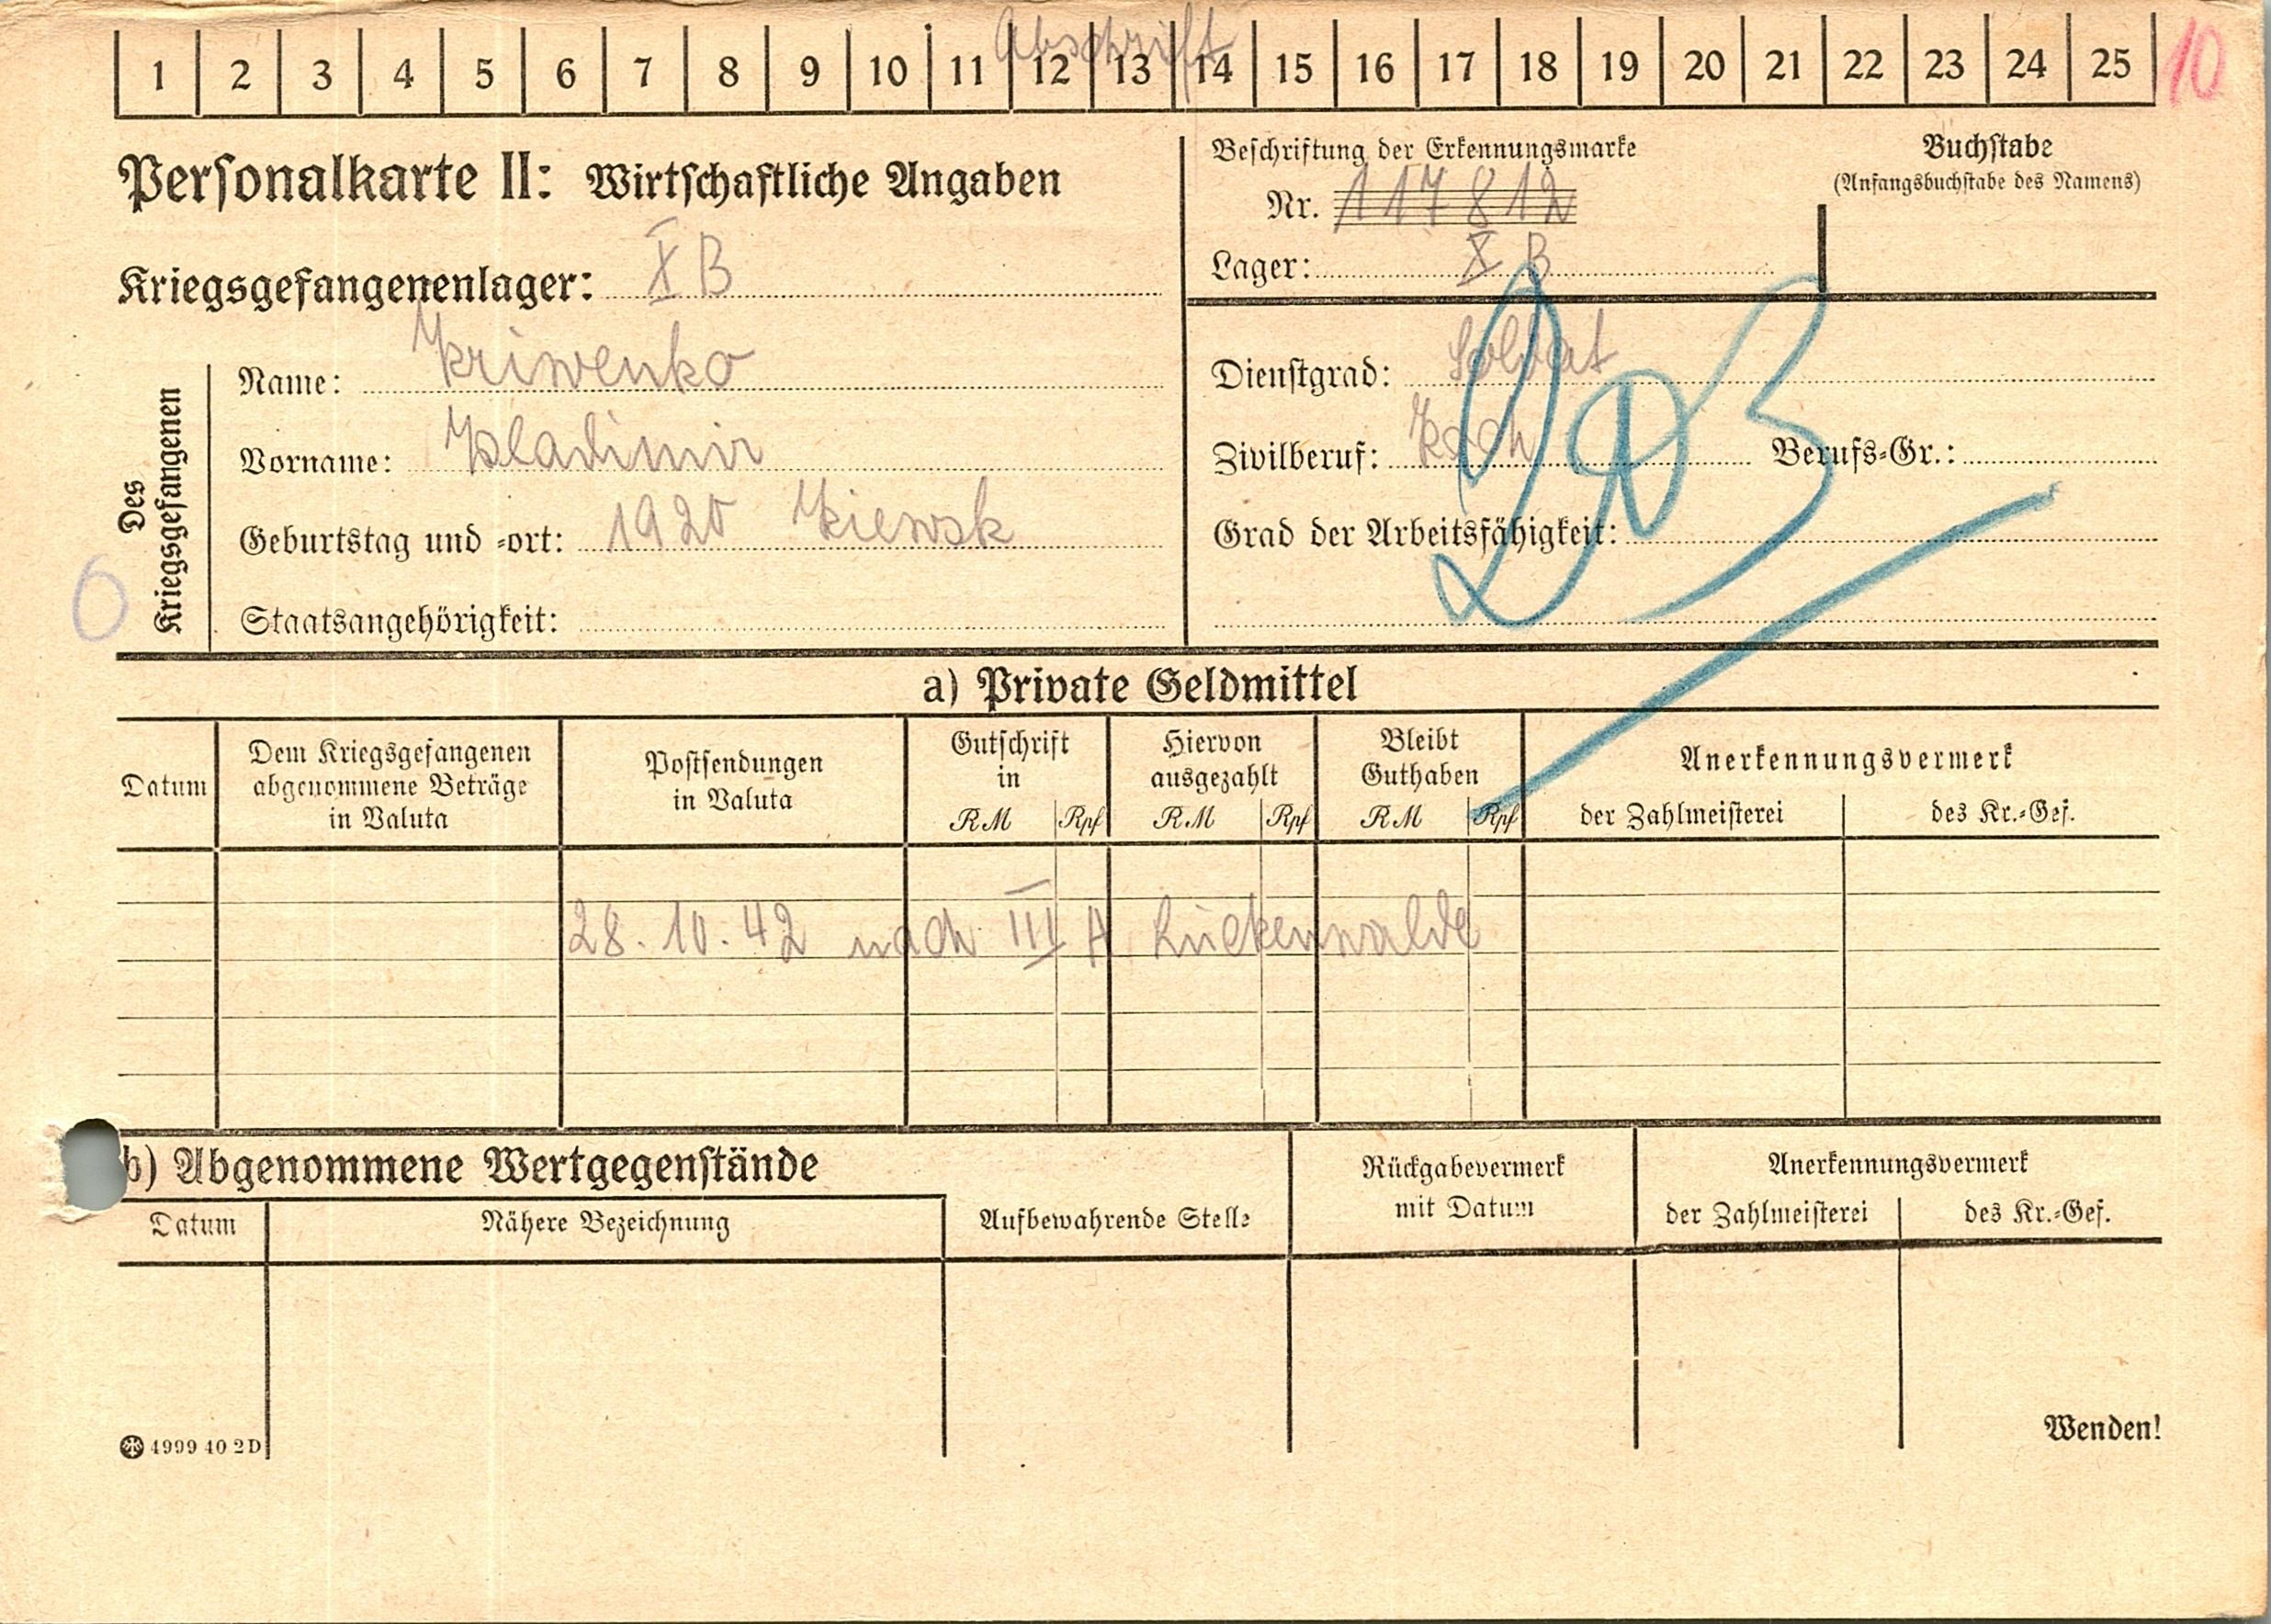 Abschrift
1 2 3 4 5 6 7 8 9 10 11 12 13 14 15 16 17 18 19 20 21 22 23 24 25 10
Personalkarte II: Wirtschaftliche Angaben
Beschriftung der Erkennungsmarke
Nr. 117812
Lager: X B
Buchstabe
(Anfangsbuchstabe des Namens)
Kriegsgefangenenlager: X B
Des Kriegsgefangenen
Name: Kriwenko
Vorname: Wladimir
Geburtstag und -ort: 1920 Kiewsk
Staatsangehörigkeit:
Dienstgrad: Soldat
Zivilberuf: Koch Berufs-Gr.:
Grad der Arbeitsfähigkeit:
a) Private Geldmittel
Datum
Dem Kriegsgefangenen
abgenommene Beträge
in Valuta
Postsendungen
in Valuta
Gutschrift
in
RM Rpf
Hiervon
ausgezahlt
RM Rpf
Bleibt
Guthaben
RM Rpf
Anerkennungsvermerk
der Zahlmeisterei des Kr.-Gef.
28.10.42 nach III A Luckenwalde
b) Abgenommene Wertgegenstände
Datum Nähere Bezeichnung
Aufbewahrende Stelle
Rückgabevermerk
mit Datum
Anerkennungsvermerk
der Zahlmeisterei des Kr.-Gef.
4999 40 2D
Wenden!